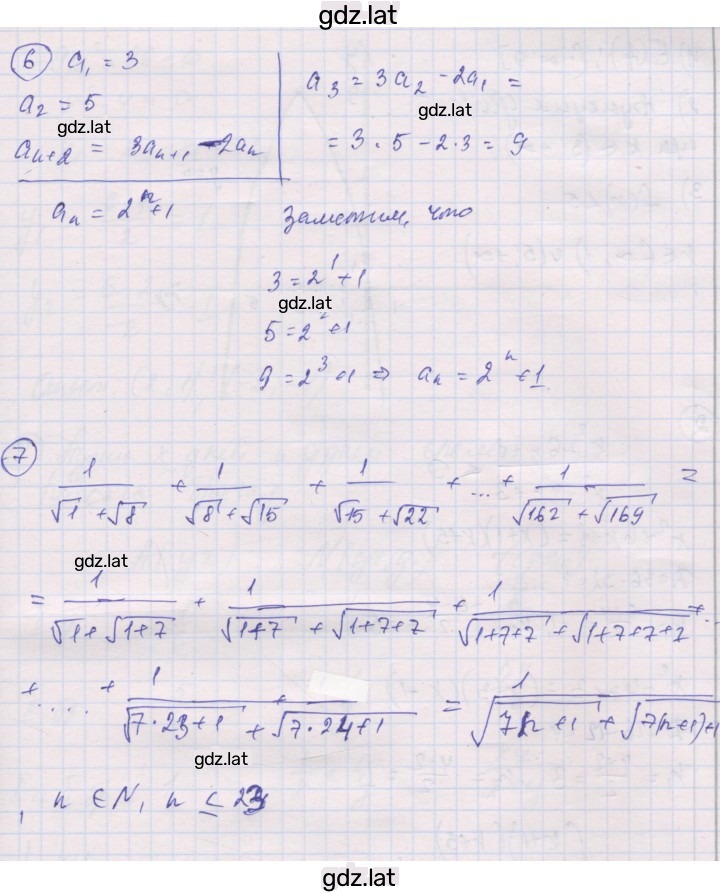 gdz.lat
6 a₁ = 3
a₂ = 5
gdz.lat
aₙ₊₂ = 3aₙ₊₁ - 2aₙ
a₃ = 3a₂ - 2a₁ =
gdz.lat
= 3 · 5 - 2 · 3 = 9
aₙ = 2ⁿ + 1
Заметим, что
3 = 2¹ + 1
gdz.lat
5 = 2² + 1
9 = 2³ + 1 ⇒ aₙ = 2ⁿ + 1
7
1/(√1 + √8) + 1/(√8 + √15) + 1/(√15 + √22) + ... + 1/(√162 + √169) =
gdz.lat
= 1/(√1 + √(1+7)) + 1/(√(1+7) + √(1+7+7)) + 1/(√(1+7+7) + √(1+7+7+7)) + ..
+ .... + 1/(√(7·23+1) + √(7·24+1)) = 1/(√(7n+1) + √(7(n+1)+1
gdz.lat
, n ∈ N, n ≤ 23
gdz.lat